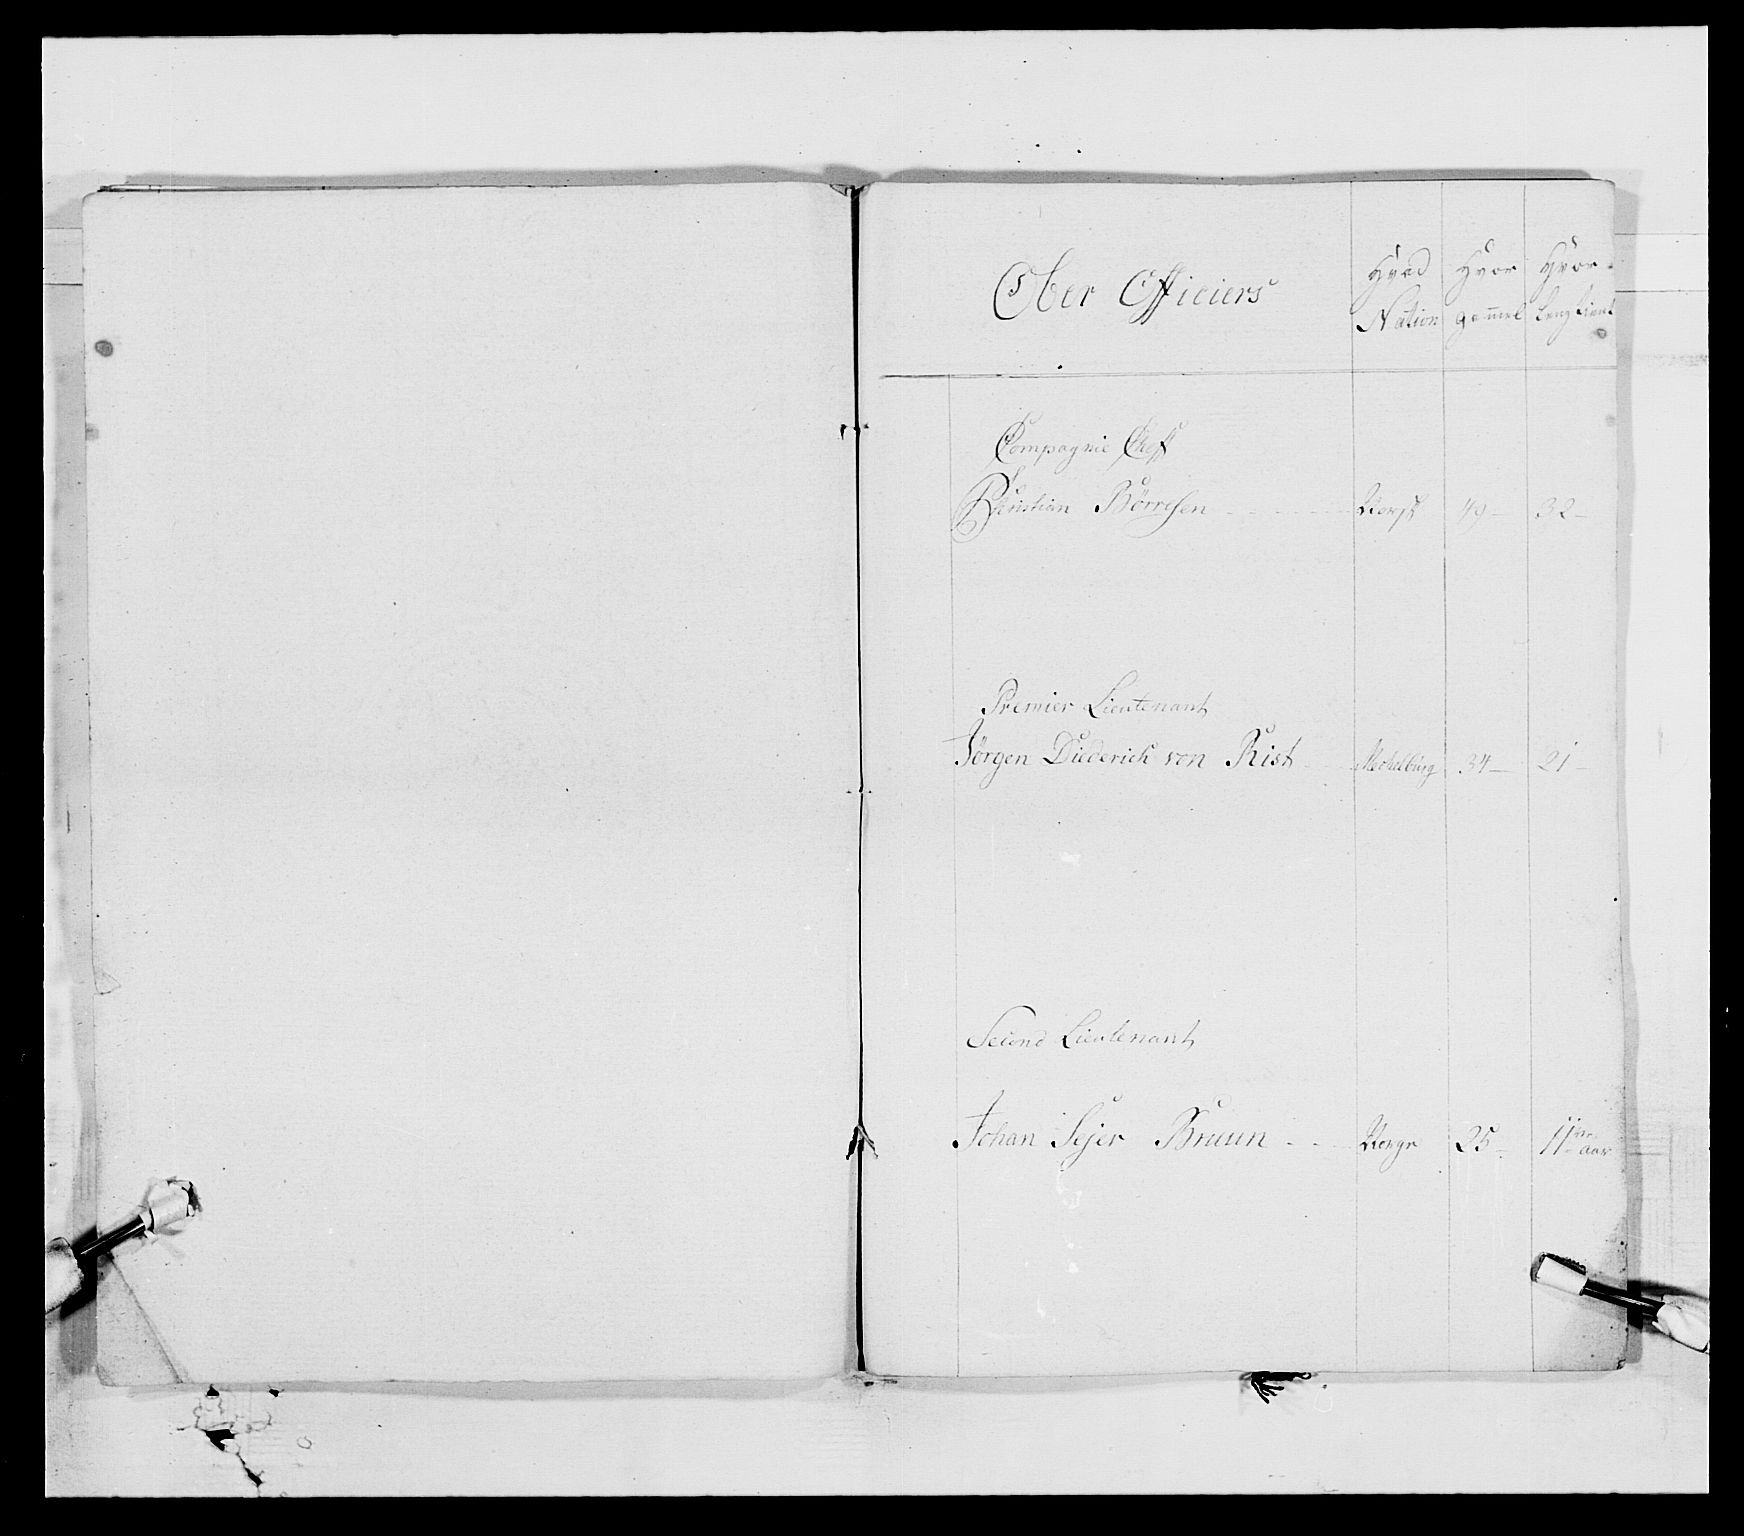 Ober Officiers
Hvad Nation
Hvor gammel
Hvor Leng tient
Compagnie Cheff
Christian Börresen - - - - Norsk 49 - 32 -
Premier Lieutenant
Jörgen Diederich von Rist - Mechelburg 34 - 21 -
Second Lieutenant
Johan Sejer Bruun - - Norge 25 - 11 aar